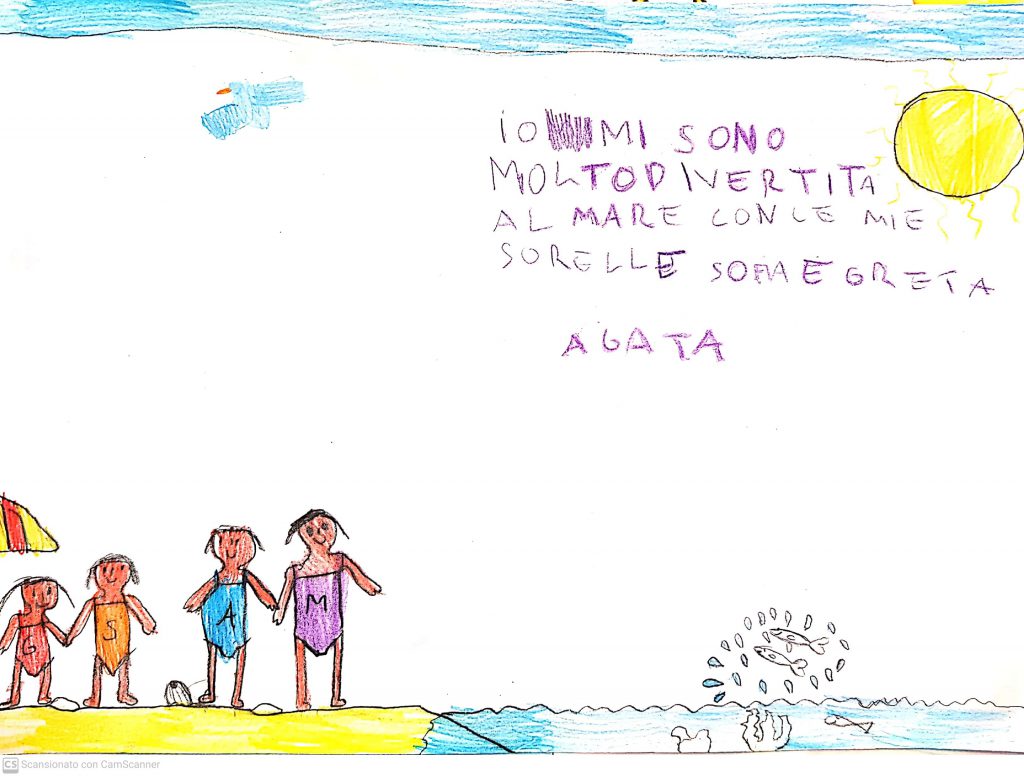 IO MI SONO
MOLTO DIVERTITA
AL MARE CON LE MIE
SORELLE SOFIA E GRETA
AGATA
G S A M
CS Scansionato con CamScanner